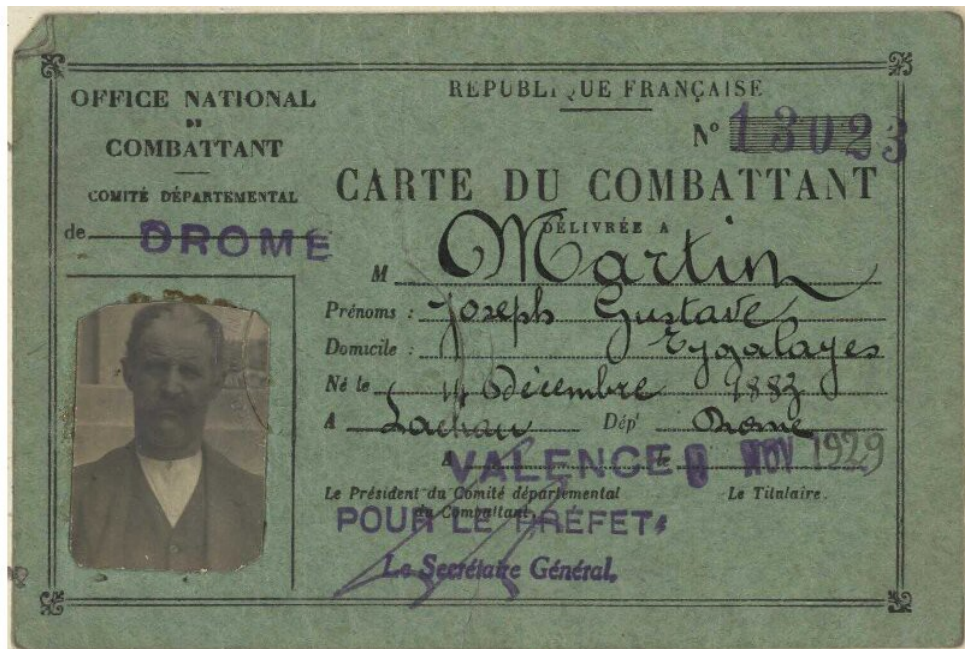 OFFICE NATIONAL
DU
COMBATTANT
COMITÉ DÉPARTEMENTAL
de DROME
REPUBLIQUE FRANÇAISE
Nº 13023
CARTE DU COMBATTANT
DÉLIVRÉE A
M Martin
Prénoms : Joseph Gustave
Domicile : Eygalayes
Né le 14 Décembre 1883
A Lachau Dépt Drome
A VALENCE le NOV 1929
Le Président du Comité départemental
du Combattant,
Le Titulaire.
POUR LE PRÉFET
Le Secrétaire Général.